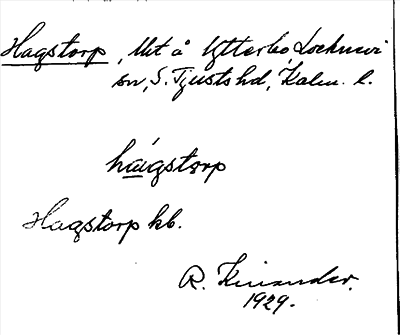 Hagstorp, Utt å Ytterbo, Locknevi
sn, S. Tjusts hd, Kalm. l.
hágstorp
Hagstorp kb.
R. Kinander.
1929.